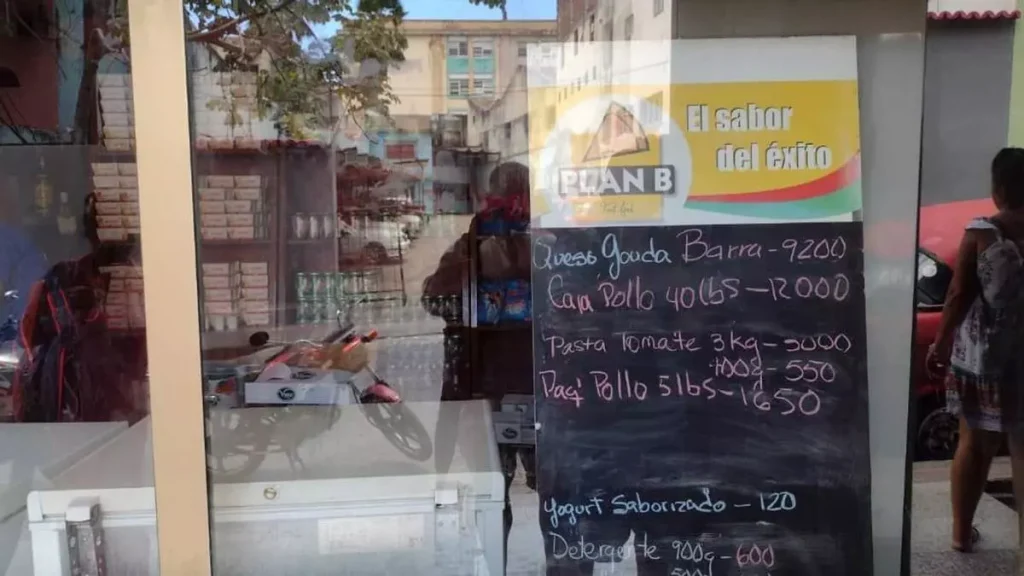 El sabor
del éxito
PLAN B
Queso gouda Barra - 9200
Caja Pollo 40lbs - 12000
Pasta Tomate 3kg - 3000
400g - 550
Paq Pollo 5lbs - 1650
yogurt Saborizado - 120
Detergente 900g - 600
500g